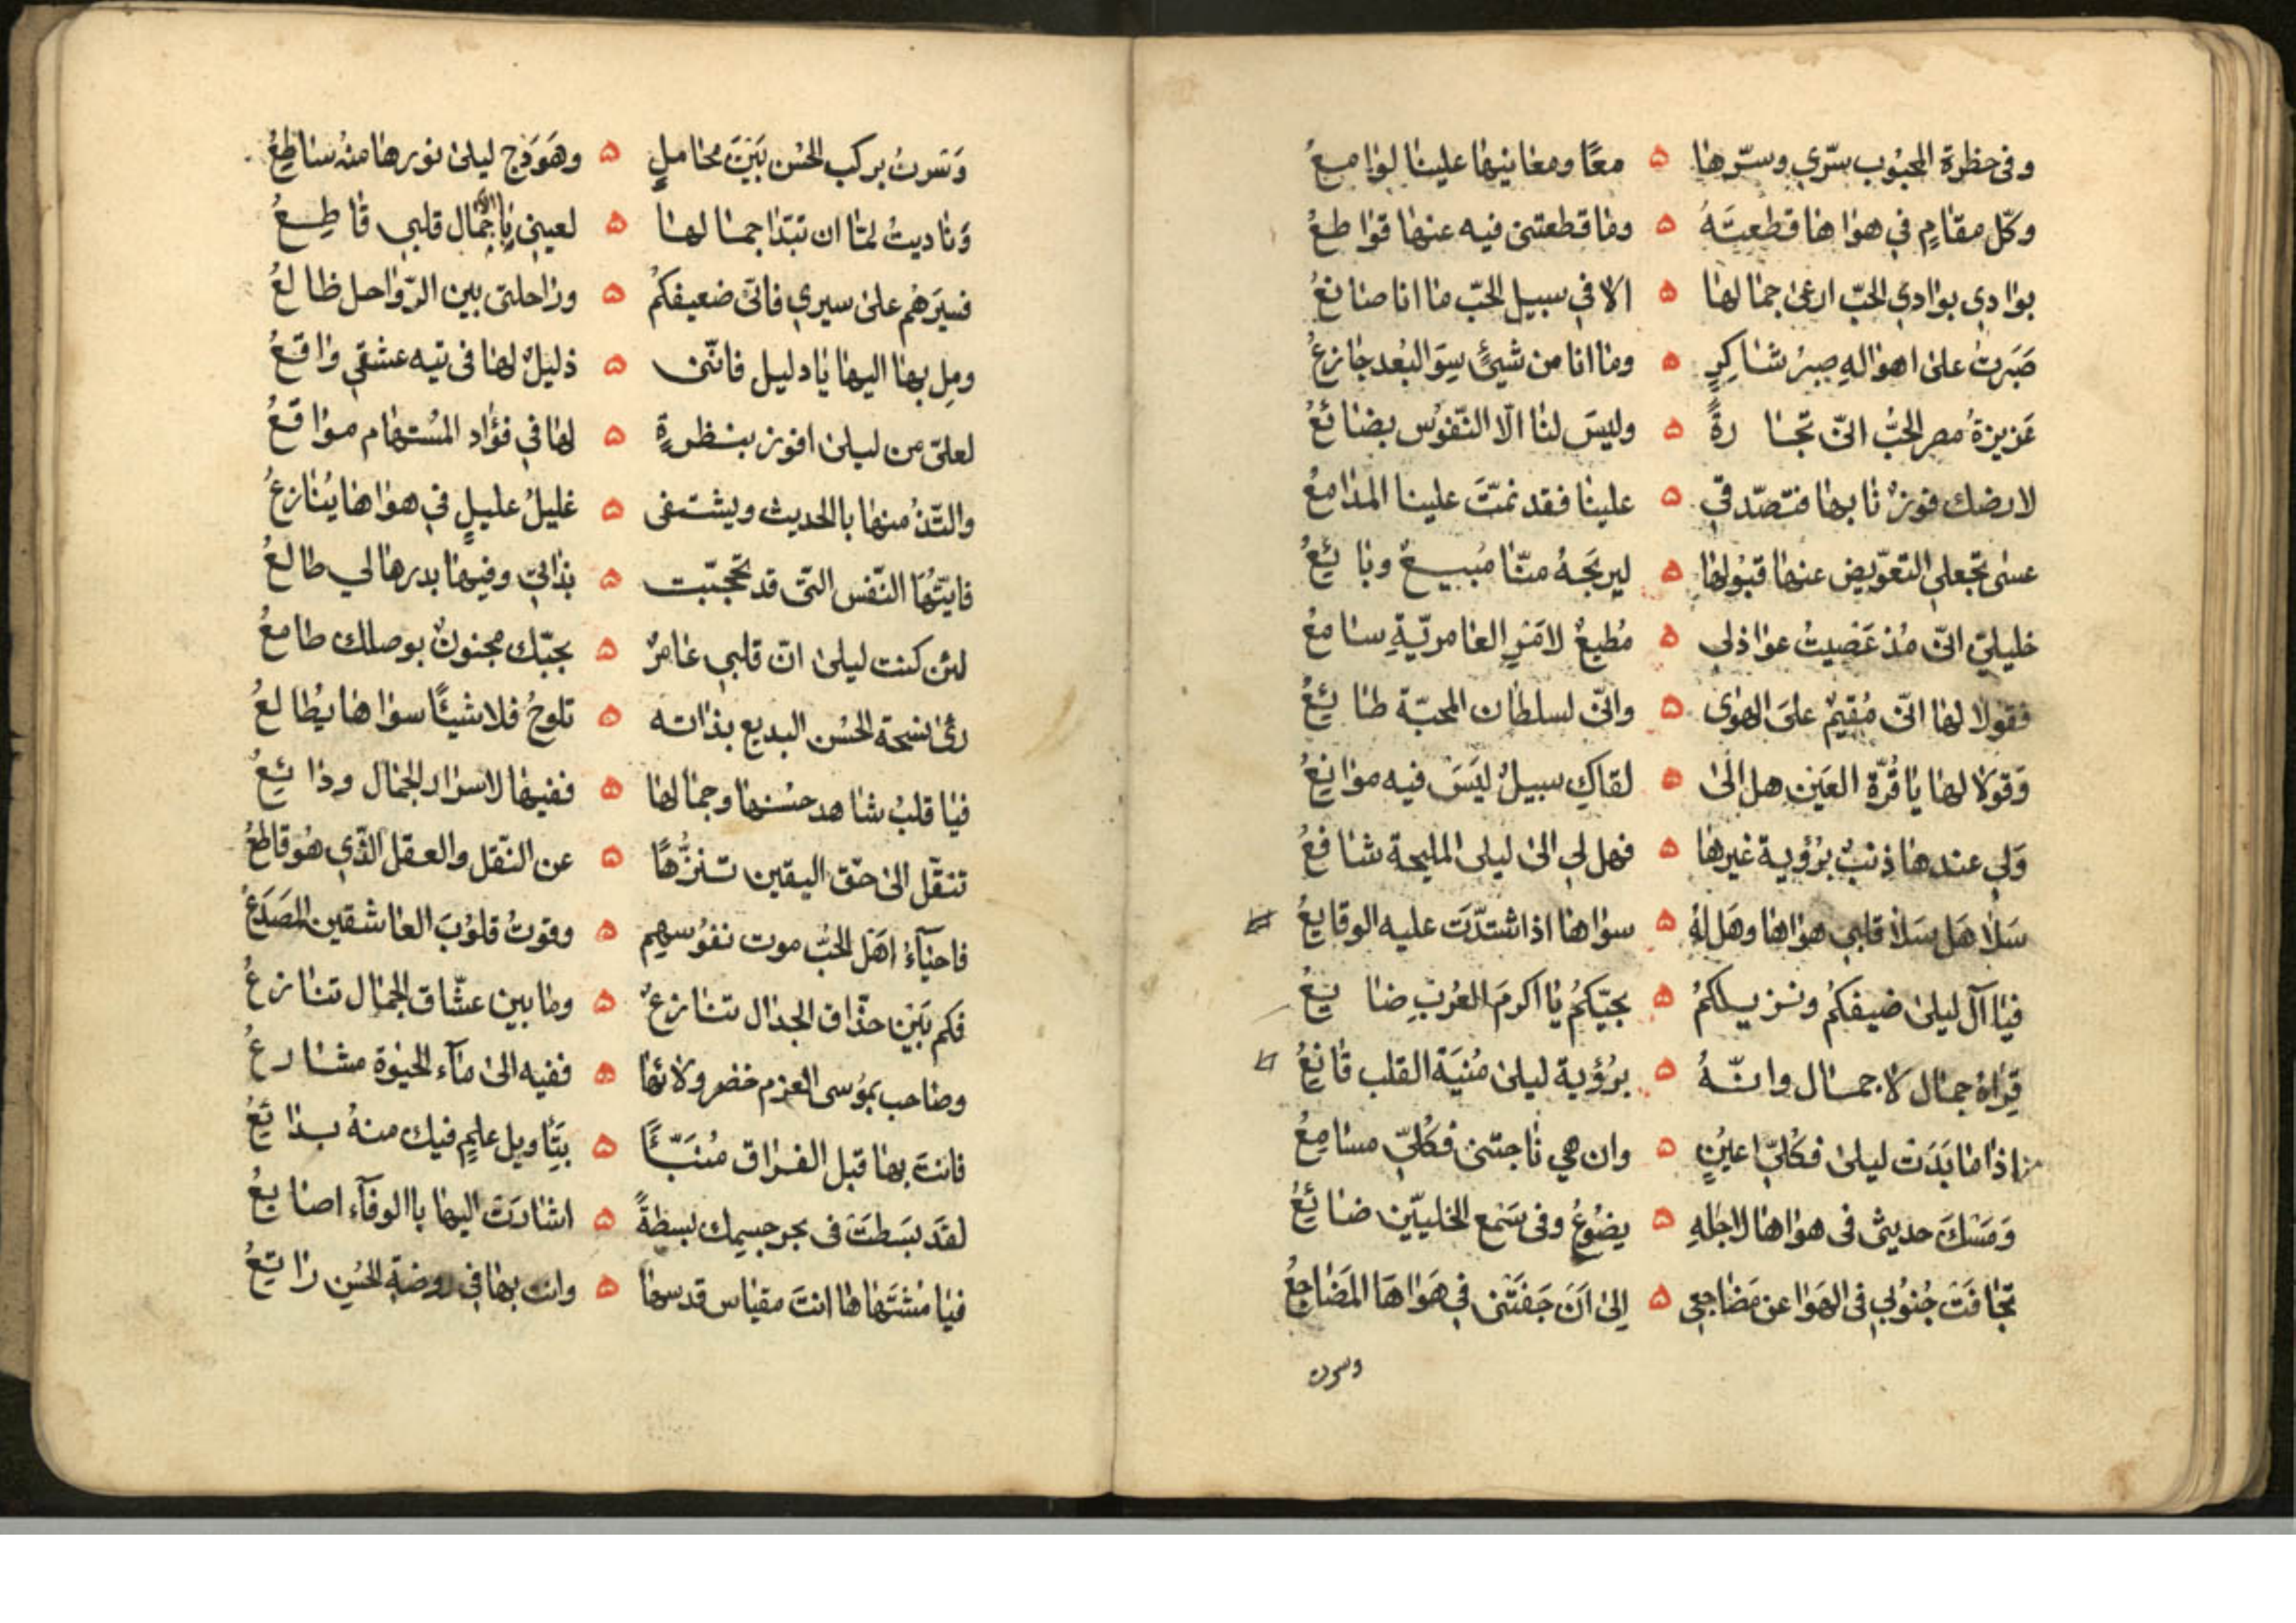 وفى حظرة المحبُوب سرّي وسرّها ه معًا ومعانيها علينا لوامعُ
وكلّ مقامٍ في هواها قطعتَهُ ه وما قطعتنى فيه عنها قواطعُ
بوادى بوادي الحبّ ارعى جمالها ه الا في سبيل الحبّ ما انا صانعُ
صَبَرتُ على اهوالهِ صبرُ شاكرٍ ه وما انا من شيئٍ سِوَ البُعد جازعُ
عَزيزةُ مصر الحُبّ انّ تجارةً ه وليسَ لنا الّا النّفوُس بضائعُ
لارضك فوزنا بها فتصّدقي ه علينا فقد نمّتَ علينا المدامعُ
عسى تجعلى التعوّيض عنها قبُولها ه ليربَحهُ منّا مُبيعٌ وبائعُ
خليليّ انّى مُذ عَصَيتُ عواذلى ه مُطيعٌ لامَرِ العامريّةِ سامعُ
فقولا لها انّى مُقِيمٌ علىَ الهوى ه وانّى لسلطان المحبّة طائعُ
وَقوَلا لها يا قُرّة العَينِ هل الىَ ه لقاكِ سبيلٌ ليَسَ فيه موانِعُ
وَلى عندها ذنبٌ برُؤية غيرها ه فهل لى الىٰ ليلى المليحة شافعُ
سَلا هَل سَلا قلبى هواها وهَل لهُ ه سواها اذا اشتدّتَ عليه الوقايعُ
فيا آل ليلىٰ ضيفكمُ ونزيلكمُ ه بحيّكمُ يا اكرمَ العُربِ ضايعُ
قِرَاهُ جمال لا جمال وانّهُ ه برُؤية ليلىٰ مُنيَة القلب قانِعُ
اذا ما بَدَت ليلىٰ فكُلىّ اعيُنٍ ه وان هي ناجتنى فكُلىّ مسامعُ
وَمَسَكَ حديثى فى هواها لاجلهِ ه يضوُعُ وفى سَمَع الخليّين ضائعُ
تجافَتَ جُنوُبي فى الهَوا عن مَضاجعِى ه الىٰ اَنَ جَفَتَنى في هَواهَا المَضاجعُ
وسرت
وَسَرتُ بركب الحُسن بَيَنَ محامِلٍ ه وهَوَدَج ليلىٰ نورها منهُ ساطِعُ
وَناديتُ لمّا ان تبَدّا جمالها ه لعينىِ يا جَمّال قلبى قاطِعُ
فسيَرَهُم علىٰ سيري فانّى ضعيفكمُ ه وراحلتى بين الرّواحل ظالعُ
ومِل بها اليها يا دليل فانّنى ه ذليلٌ لها فى تيه عشقي واقعُ
لعلىّ من ليلىٰ افوز بنظرةٍ ه لها في فؤاد المُستهام مواقعُ
والتّذُ منها بالحديث ويشتفى ه غليلُ عليلٍ في هواها يُنازعُ
فايتَهُا النّفس التّى قد تحجّبت ه بذاتي وفيها بدرها لي طالعُ
لئن كنت ليلىٰ انّ قلبى عامرٌ ه بحبّك مجنونٌ بوصلك طامعُ
رئ نسخة الحُسن البديع بذاته ه تلوحُ فلا شيئًا سواها يُطالعُ
فيا قلبُ شاهد حسُنها وجمالها ه ففيها لاسرار الجمال ودائعُ
تنقّل الىٰ حقّ اليقين تنزُّهًا ه عن النقل والعقل الّذي هُو قاطعُ
فاحيَآءُ اهَل الحُبّ موت نفوُسهم ه وقوتُ قلوُبَ العاشقين المصَارعُ
فكم بَيَن حذّاق الجدال تنازعٌ ه وما بين عشّاق الجمال تنازعُ
وصاحب بموُسى العزم خضر ولائها ه ففيه الىٰ مآء الحيوٰة مشارعُ
فانتَ بها قبل الفراق مُنبّئًا ه بتَأويل علمٍ فيك منهُ بدائعُ
لقدَ بسَطتَ فى بحر جسِمك بسطةً ه اشارَتَ اليها بالوفآء اصابعُ
فيا مُشتَهاها انتَ مقياس قدسها ه وانت بها في روضةِ الحُسنِ راتِعُ